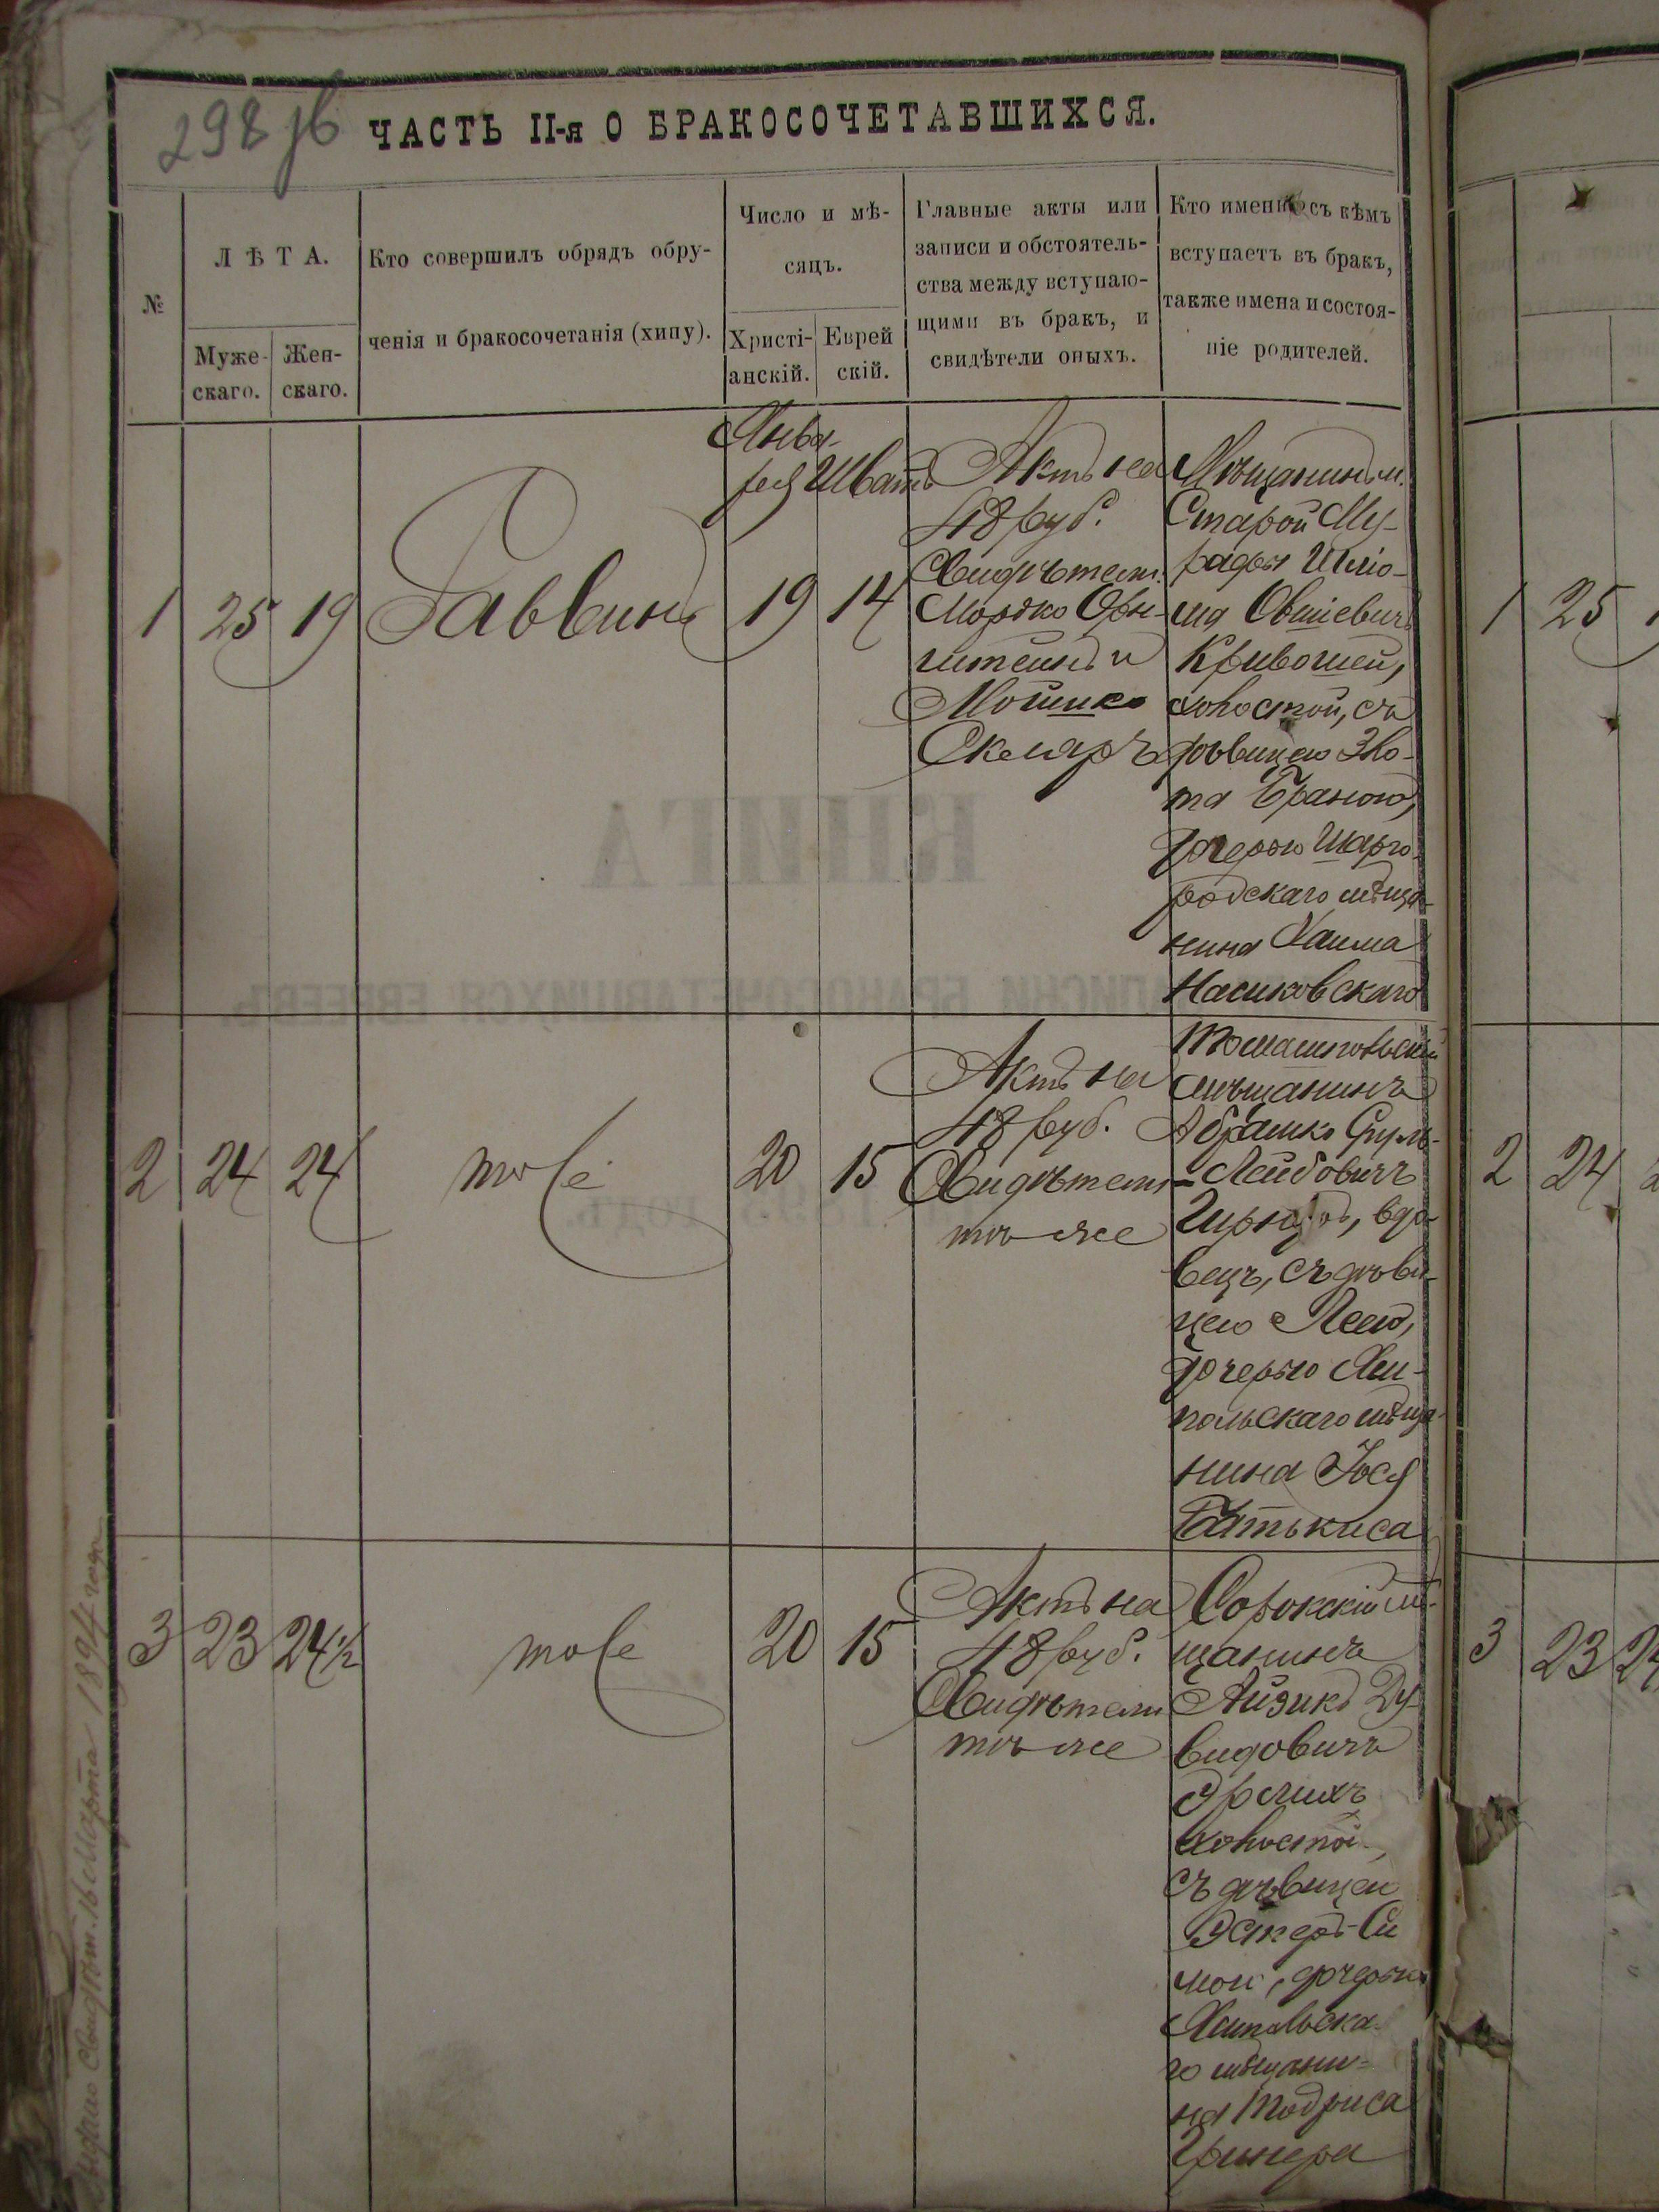 298 зв
ЧАСТЬ II-я О БРАКОСОЧЕТАВШИХСЯ.
№
ЛѢТА.
Муже-
скаго.
Жен-
скаго.
Кто совершилъ обрядъ обру-
ченія и бракосочетанія (хипу).
Число и мѣ-
сяцъ.
Христі-
анскій.
Еврей
скій.
Главные акты или
записи и обстоятель-
ства между вступаю-
щими въ бракъ, и
свидѣтели оныхъ.
Кто именно съ кѣмъ
вступаетъ въ бракъ,
также имена и состоя-
ніе родителей.
1
25
19
Раввинъ
Янва-
ря
19
Шватъ
14
Актъ на
48 руб.
Свидѣтели
Мордко
и
Мошко
Скляръ
Мѣщанинъ м.
Старой Му-
рафы Шлiо-
ма Овшiевичъ
Кривошей,
холостой, съ
дѣвицею Зло-
та Браною,
дочерью Шарго-
родскаго мѣща-
нина Хаима
Насиковскаго
2
24
24
тоже
20
15
Актъ на
48 руб.
Свидѣтели
тѣ же
Томашпольскiй
мѣщанинъ
Абрамко Сруль-
Лейбовичъ
вдо-
вецъ, съ дѣви-
цею Леею,
дочерью Ям-
польскаго мѣща-
нина Іося
3
23
24½
тоже
20
15
Актъ на
48 руб.
Свидѣтели
тѣ же
Сорокскiй мѣ-
щанинъ
Айзикъ Ду-
видовичъ
Эрлихъ
холостой,
съ дѣвицею
Эстеръ-Си
мою, дочерью
Ямпольска-
го мѣщани-
на Тодриса
Гринера
Выдано свидѣт. 16 Марта 1894 года
1
25
2
24
3
23
КНИГА